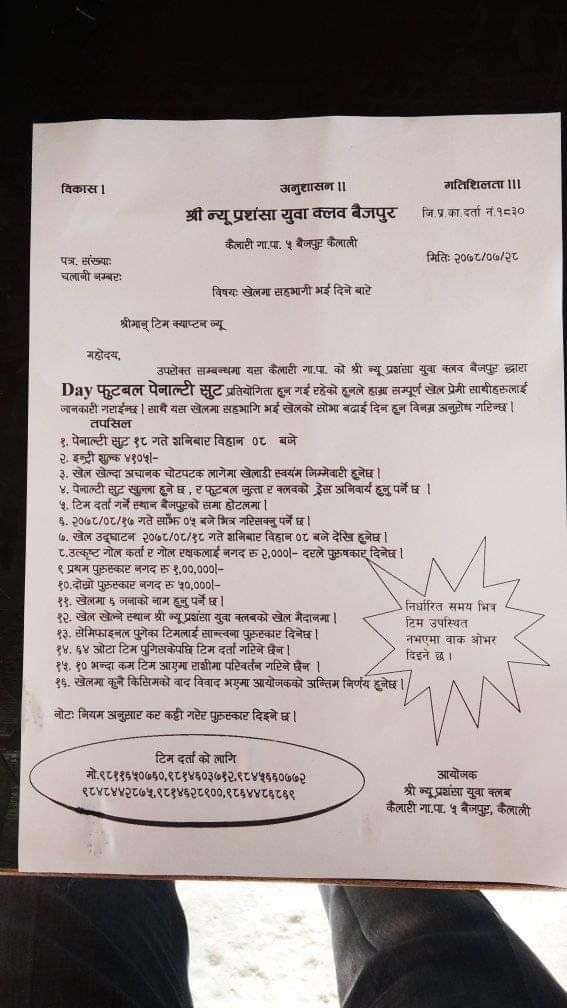 विकास । अनुशासन ॥ गतिशिलता ।।।
श्री न्यू प्रशंसा युवा क्लव बैजपुर जि.प्र.का.दर्ता नं.१८३०
कैलारी गा.पा. ५ बैजपुर कैलाली
पत्र. संख्याः मितिः २०७८/०७/२८
चलानी नम्बरः
विषयः खेलमा सहभागी भई दिने बारे
श्रीमान् टिम क्याप्टन ज्यू
महोदय,
उपरोक्त सम्बन्धमा यस कैलारी गा.पा. को श्री न्यू प्रशंसा युवा क्लव बैजपुर द्धारा
Day फूटबल पेनाल्टी सुट प्रतियोगिता हुन गई रहेको हुनले हाम्रा सम्पूर्ण खेल प्रेमी साथीहरुलाई
जानकारी गराईन्छ । साथै यस खेलमा सहभागि भई खेलको सोभा बढाई दिन हुन विनम्र अनुरोध गरिन्छ ।
तपसिल
१. पेनाल्टी सुट १८ गते शनिबार विहान ०८ बजे
२. इन्ट्री शुल्क ४१०५।-
३. खेल खेल्दा अचानक चोटपटक लागेमा खेलाडी स्वयंम जिम्मेवारी हुनेछ ।
४. पेनाल्टी सुट खुल्ला हुने छ , र फूटबल जुत्ता र क्लवको ड्रेस अनिवार्य हुनु पर्ने छ ।
५. टिम दर्ता गर्ने स्थान बैजपुरको समा होटलमा ।
६. २०७८/०८/१७ गते साँझ ०५ बजे भित्र गरिसक्नु पर्ने छ ।
७. खेल उद्घाटन २०७८/०८/१८ गते शनिबार विहान ०८ बजे देखि हुनेछ ।
८.उत्कृष्ट गोल कर्ता र गोल रक्षकलाई नगद रु २,०००।- दरले पुरुषकार दिनेछ ।
९ प्रथम पुरुस्कार नगद रु १,००,०००।-
१०.दोस्रो पुरुस्कार नगद रु ५०,०००।-
११. खेलमा ६ जनाको नाम हुनु पर्ने छ ।
१२. खेल खेल्ने स्थान श्री न्यू प्रशंसा युवा क्लबको खेल मैदानमा ।
१३. सेमिफाइनल पुगेका टिमलाई सान्त्वना पुरुस्कार दिनेछ ।
१४. ६४ ओटा टिम पुगिसकेपछि टिम दर्ता गरिने छैन ।
१५. १० भन्दा कम टिम आएमा राशीमा परिवर्तन गरिने छैन ।
१६. खेलमा कुनै किसिमको वाद विवाद भएमा आयोजकको अन्तिम निर्णय हुनेछ ।
निर्धारित समय भित्र
टिम उपस्थित
नभएमा वाक ओभर
दिइने छ ।
नोटः नियम अनुसार कर कट्टी गरेर पुरुस्कार दिइने छ ।
टिम दर्ता को लागि
मो.९८११६५०७६०,९८१४६०३७१२,९८४५६६०७७२
९८४८४४२८७५,९८१४६२८९००,९८६४४८६८६९
आयोजक
श्री न्यू प्रशंसा युवा क्लब
कैलारी गा.पा. ५ बैजपुर, कैलाली